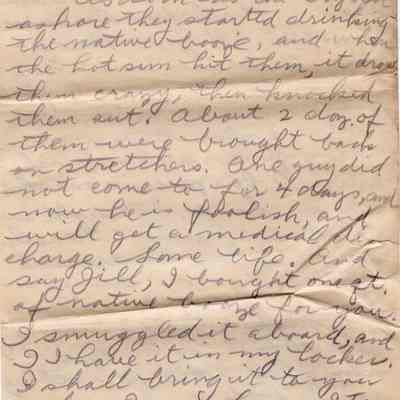 ashore they started drinking
the native booze, and when
the hot sun hit them, it drove
them crazy, then knocked
them out. About 2 doz. of
them were brought back
on stretchers. One guy did
not come to for 4 days, and
now he is foolish, and
will get a medical dis
charge. Some life. And
say Jill, I bought one qt.
of native booze for you.
I smuggled it aboard, and
I have it in my locker.
I shall bring it to you